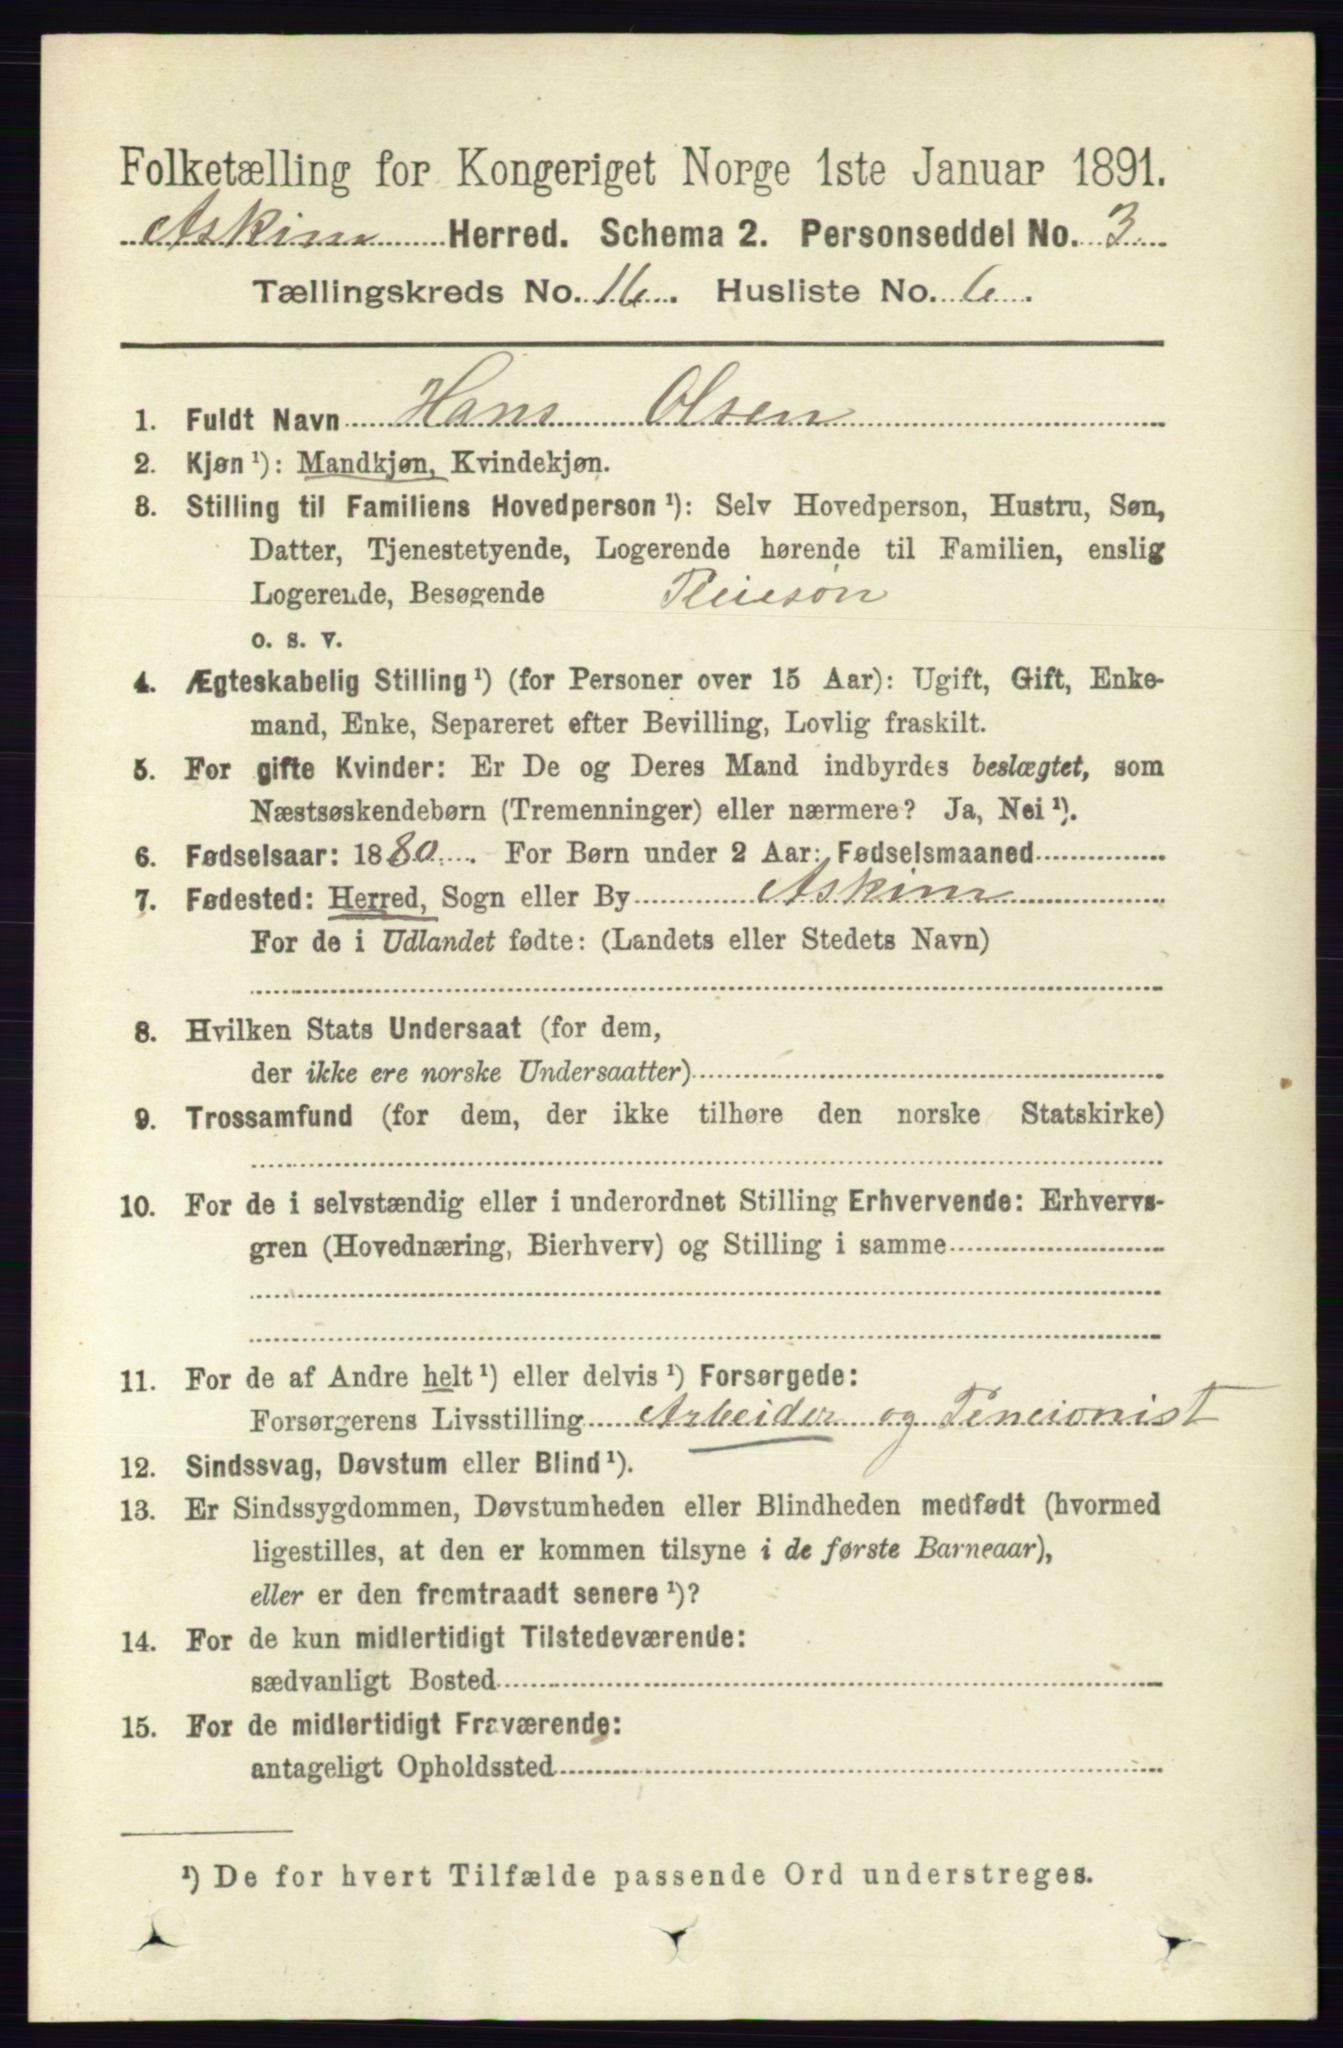 Folketælling for Kongeriget Norge 1ste Januar 1891.
Askim Herred. Schema 2. Personseddel No. 3
Tællingskreds No. 16. Husliste No. 6.
1. Fuldt Navn Hans Olsen
2. Kjøn ¹): Mandkjøn, Kvindekjøn.
3. Stilling til Familiens Hovedperson ¹): Selv Hovedperson, Hustru, Søn,
Datter, Tjenestetyende, Logerende hørende til Familien, enslig
Logerende, Besøgende Pleiesøn
o. s. v.
4. Ægteskabelig Stilling ¹) (for Personer over 15 Aar): Ugift, Gift, Enke-
mand, Enke, Separeret efter Bevilling, Lovlig fraskilt.
5. For gifte Kvinder: Er De og Deres Mand indbyrdes beslægtet, som
Næstsøskendebørn (Tremenninger) eller nærmere? Ja, Nei ¹).
6. Fødselsaar: 1880. For Børn under 2 Aar: Fødselsmaaned
7. Fødested: Herred, Sogn eller By Askim
For de i Udlandet fødte: (Landets eller Stedets Navn)
8. Hvilken Stats Undersaat (for dem,
der ikke ere norske Undersaatter)
9. Trossamfund (for dem, der ikke tilhøre den norske Statskirke)
10. For de i selvstændig eller i underordnet Stilling Erhvervende: Erhvervs-
gren (Hovednæring, Bierhverv) og Stilling i samme
11. For de af Andre helt ¹) eller delvis ¹) Forsørgede:
Forsørgerens Livsstilling Arbeider og Pencionist
12. Sindssvag, Døvstum eller Blind ¹).
13. Er Sindssygdommen, Døvstumheden eller Blindheden medfødt (hvormed
ligestilles, at den er kommen tilsyne i de første Barneaar),
eller er den fremtraadt senere ¹)?
14. For de kun midlertidigt Tilstedeværende:
sædvanligt Bosted
15. For de midlertidigt Fraværende:
antageligt Opholdssted
¹) De for hvert Tilfælde passende Ord understreges.